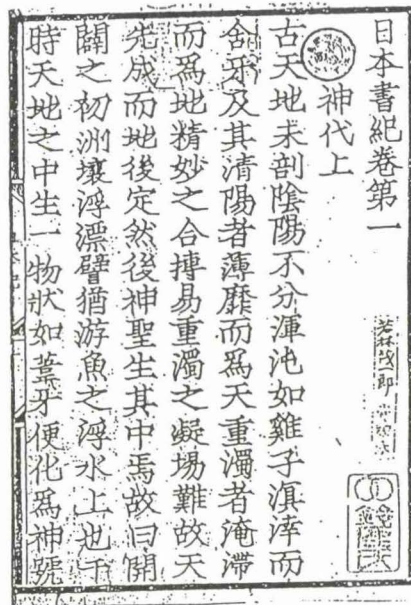 日本書紀巻第一
神代上
古天地未剖陰陽不分渾沌如雞子溟涬而
含牙及其清陽者薄靡而為天重濁者淹滯
而為地精妙之合摶易重濁之凝場難故天
先成而地後定然後神聖生其中焉故曰開
闢之初洲壤浮漂譬猶游魚之浮水上也于
時天地之中生一物狀如葦牙便化為神號